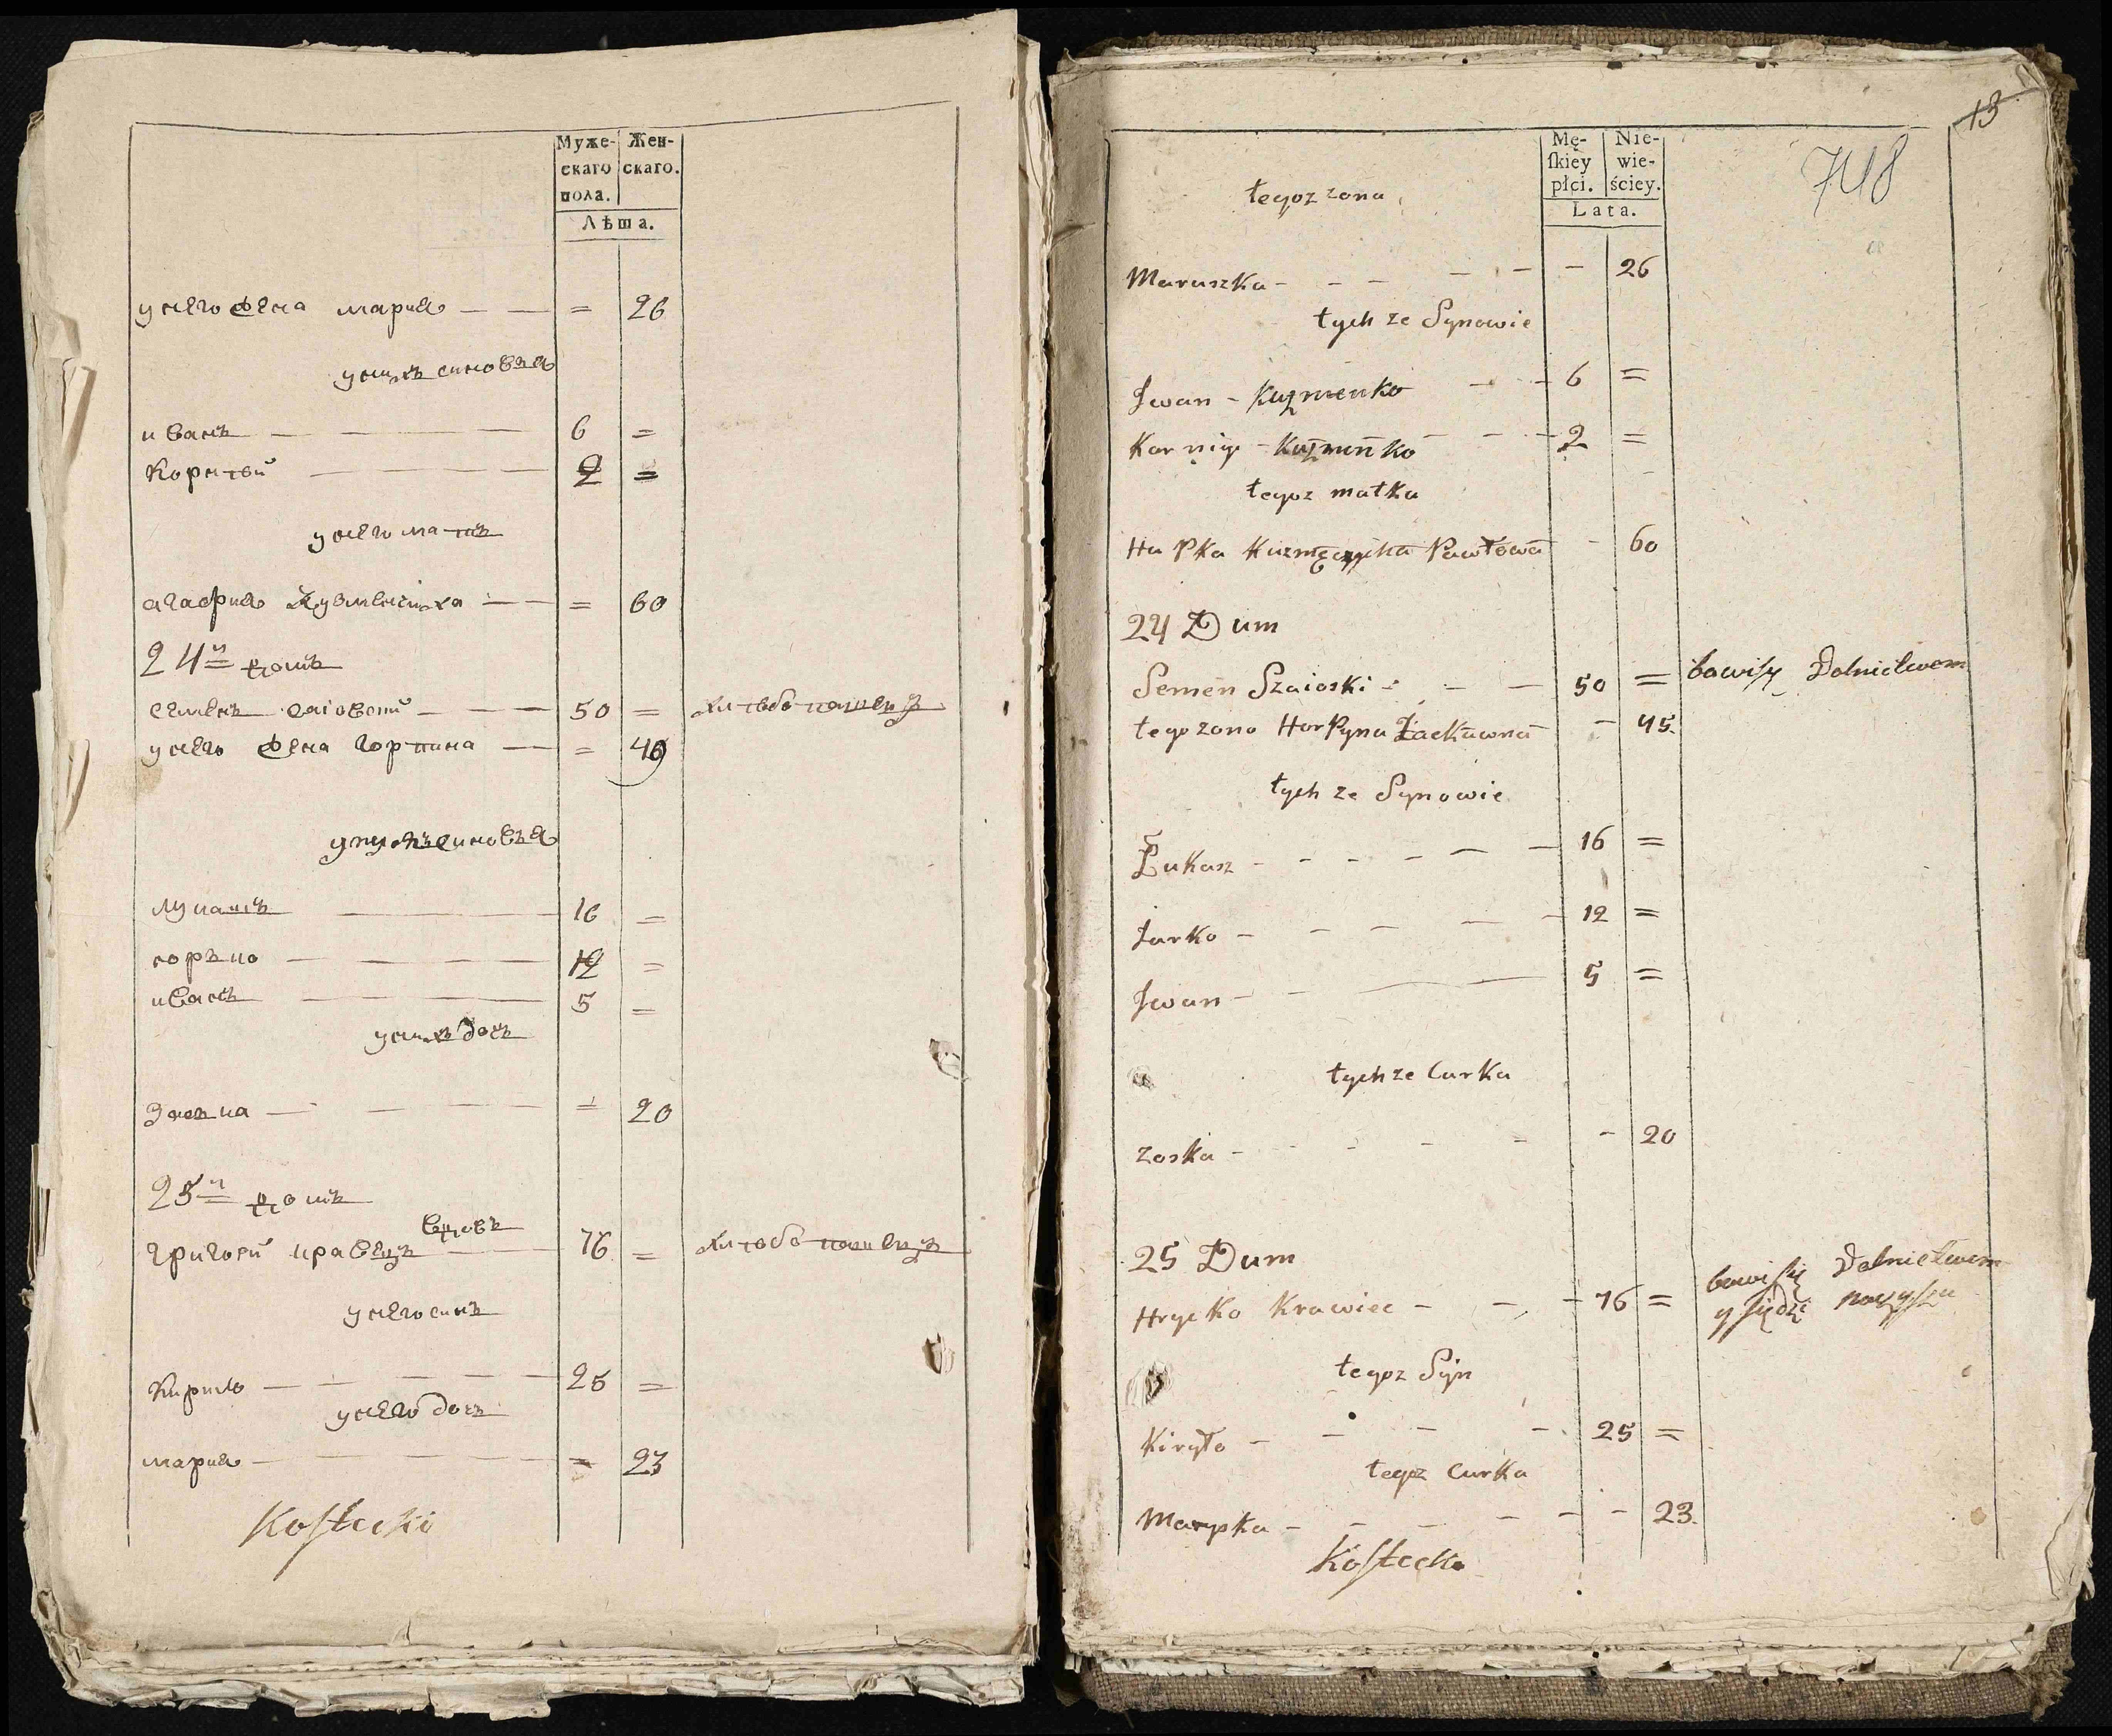 Муже-
скаго
пола.
Жен-
скаго.
Лѣта.
унего жена мария — — = 26
унихъ синовѣя
иванъ — — — 6 =
Корнѣй — — — 2 =
унего мать
агафия Кузменчиха — — = 60
24й домъ
семенъ саіовский — — — 50 = хлѣбопашецъ
унего жена горпина — = 49
унихъ синовѣя
лукашъ — — 16 =
юрѣко — — — — 12 =
иванъ — — — 5 =
унихъ дочь
зосѣка — — — = 20
25й домъ
вдовъ
григорий кравецъ — — 76 = хлѣбопашецъ
унего синъ
Кирило — — — — — 25 =
унего дочь
мария — — — — = 23
Kostecki
13
748
Mę-
ſkiey
płci.
Nie-
wie-
ściey.
Lata.
tegoz zona
Maruszka - - - - - - 26
tych ze Synowie
Jwan - Kuzmenko - - 6 =
Karniy - Kuzmenko - - - 2 =
tegoz matka
HaPka Kuzmęczycha Pawłowa - 60
24 Dum
Semen Szaioski - - - 50 = bawisy Dolnictwem
tego zona HorPyna Łackawna - 45.
tych ze Synowie
Łukasz - - - - - - 16 =
Jurko - - - - - 12 =
Jwan - - - 5 =
tych ze Curka
Zoska - - - - - - 20
25 Dum
Hrycko Krawiec - - - 76 = bawisię Dolnictwem
y siędzi
tegoz Syn
Kiryło - - - - 25 =
tegoz Curka
Marypka - - - - - - 23.
Kostecki